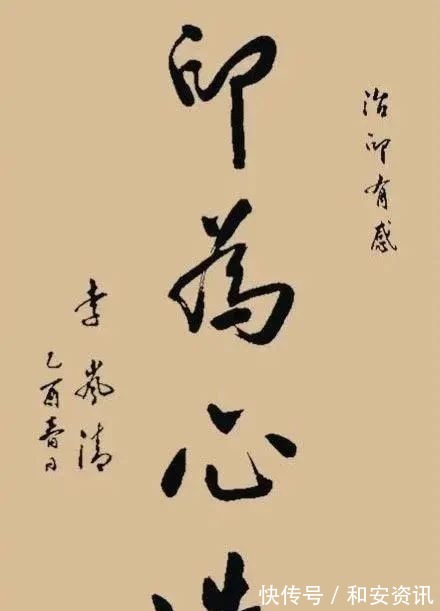 治印有感
印為心
李嵐清
乙酉春日
快传号 / 和安资讯